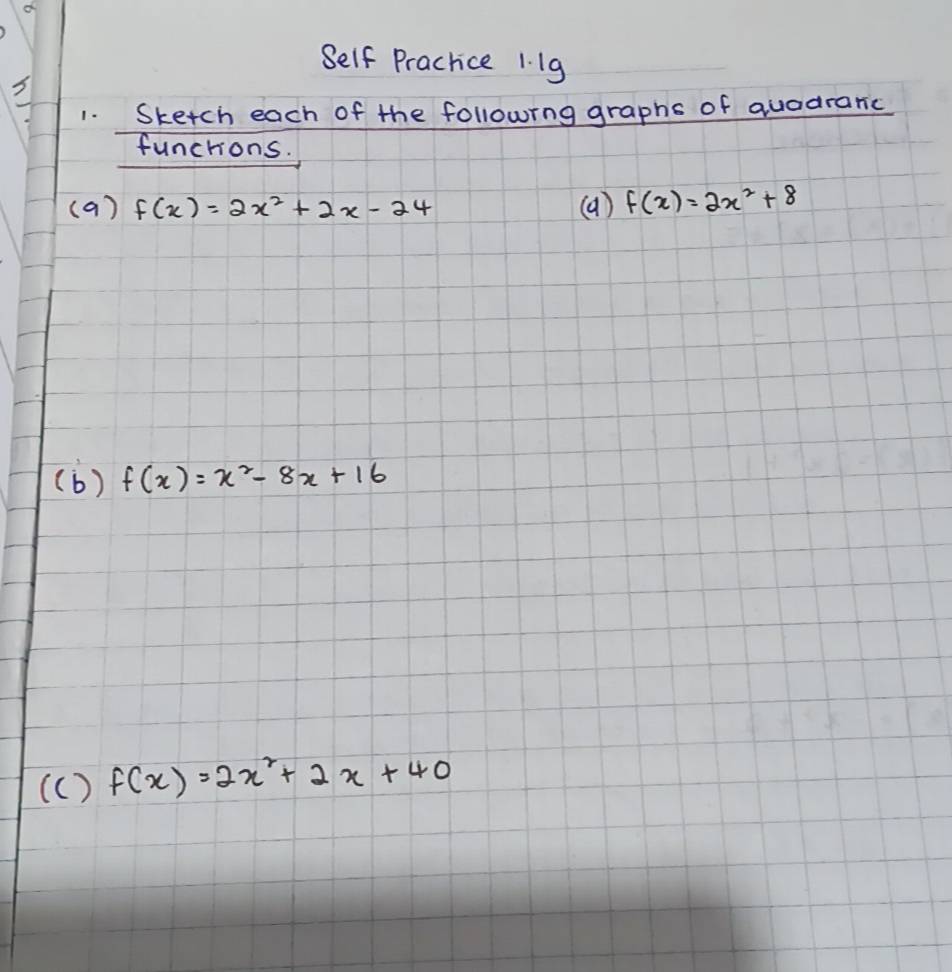 Self Practice 1.1g
1. Sketch each of the following graphs of quadratic
functions.
(a) f(x) = 2x² + 2x - 24
(d) f(x) = 2x² + 8
(b) f(x) = x² - 8x + 16
(c) f(x) = 2x² + 2x + 40